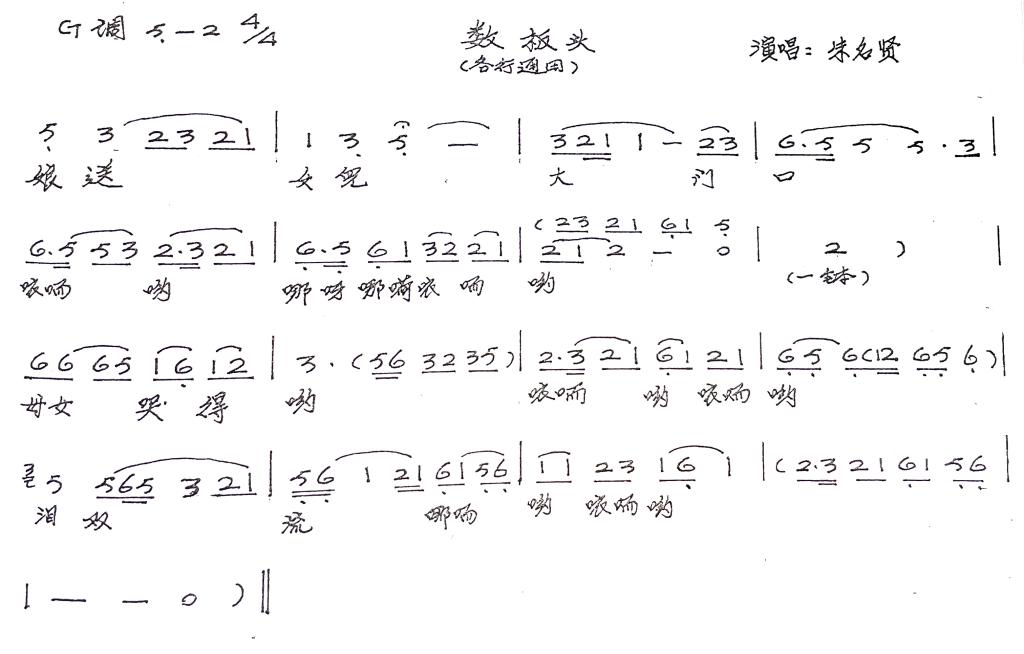 G调 5—2 4/4 数板头 演唱：朱名贤
(各行通用)
5 3 23 21 | 1 3 5 — | 321 1 — 23 | 6.5 5 5.3 |
娘送 女儿 大 门 口
6.5 53 2.3 21 | 6.5 61 32 21 | (23 21 61 5
21 2 — 0 | 2 ) |
哝哂 哟 哪呀哪嗬哝 哂 哟 (一老本)
66 65 16 12 | 3.(56 3235) | 2.3 21 61 21 | 65 6(12 65 6) |
母女 哭 得 哟 哝哂 哟 哝哂 哟
3 5 565 3 21 | 56 1 21 61 56 | 11 23 16 1 | (2.3 21 61 56 |
泪 双 流 哪哂 哟 哝哂哟
1 — — 0 ) ||